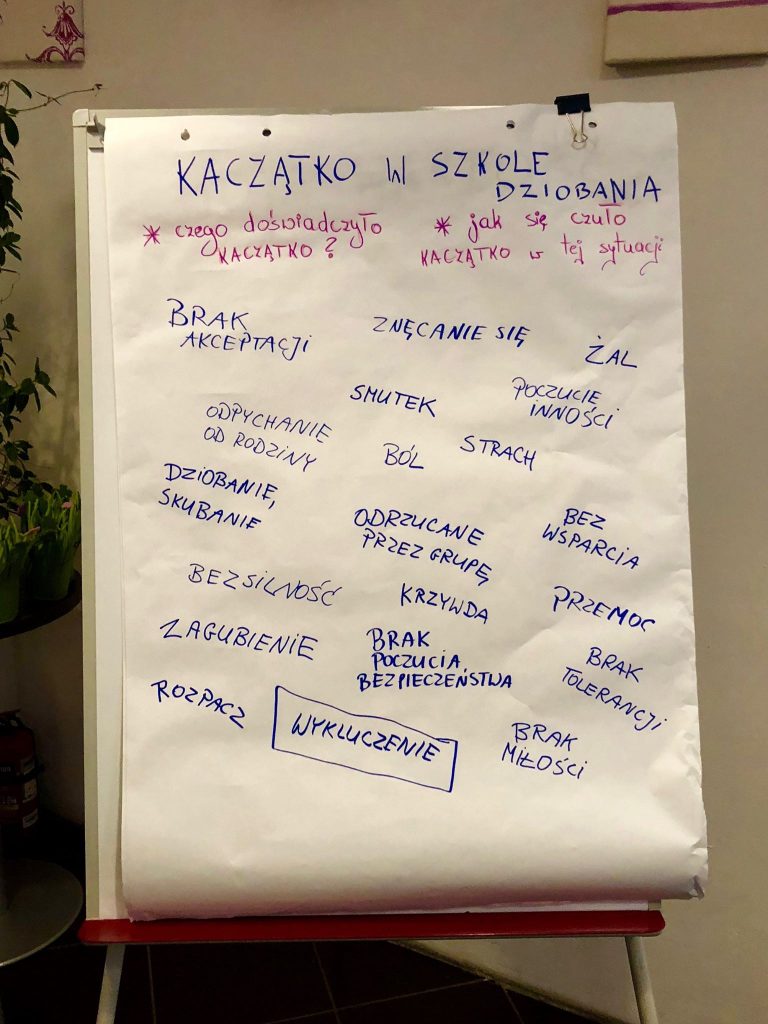 KACZĄTKO W SZKOLE
DZIOBANIA
* czego doświadczyło
KACZĄTKO?
* jak się czuło
KACZĄTKO w tej sytuacji
BRAK
AKCEPTACJI
ZNĘCANIE SIĘ
ŻAL
SMUTEK
POCZUCIE
INNOŚCI
ODPYCHANIE
OD RODZINY
BÓL
STRACH
DZIOBANIE,
SKUBANIE
ODRZUCANE
PRZEZ GRUPĘ
BEZ
WSPARCIA
BEZSILNOŚĆ
KRZYWDA
PRZEMOC
ZAGUBIENIE
BRAK
POCZUCIA
BEZPIECZEŃSTWA
BRAK
TOLERANCJI
ROZPACZ
WYKLUCZENIE
BRAK
MIŁOŚCI